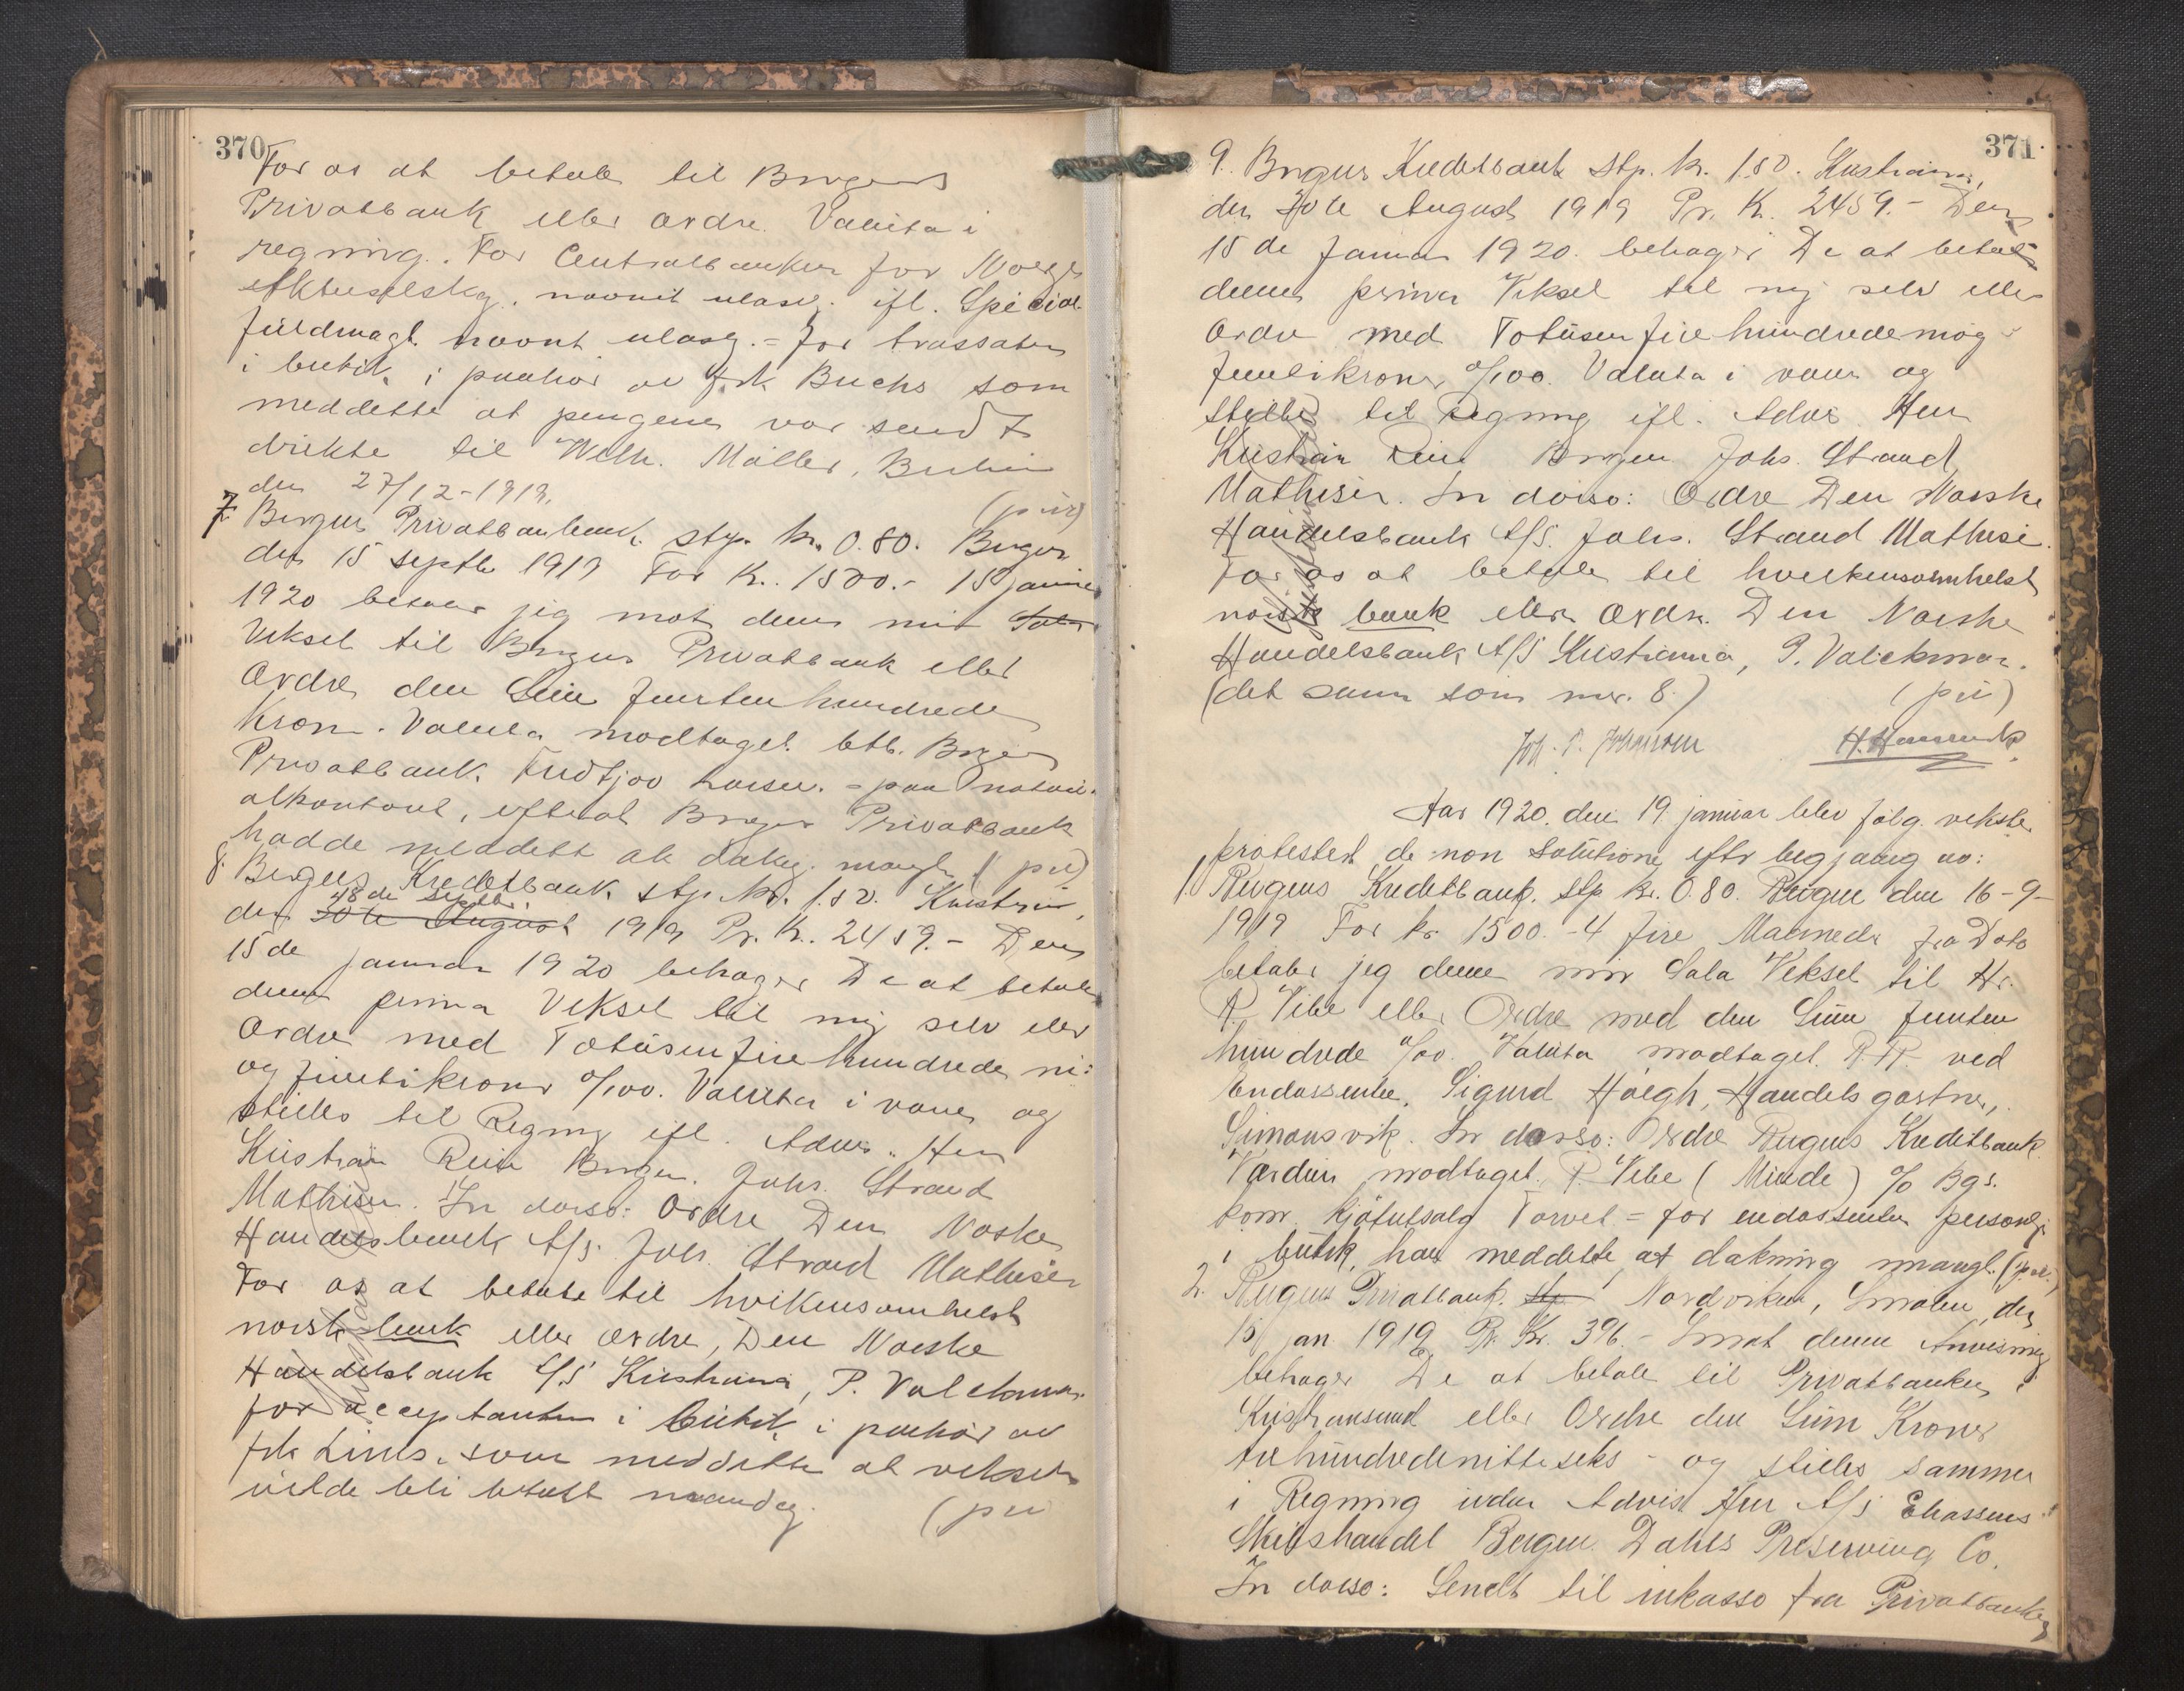 370
For os at betale til Bergens
Privatbank eller ordre. Valuta i
regning. For Centralbanken for Norge
navnit ulæsl. ifl. Special
fuldmagt. navnt ulæsl. = for trassaten
i butik, i paahør av frk. Buchs som
meddelte at pengene var sendt
direkte til Wilh. Møller, Berlin
den 27/12-1919. (prv)
7. Bergens Privatbank. stp. kr. 0.80. Bergen
den 15 septbr 1919 For Kr. 1500.- 15 januar
1920 betaler jeg mot denne min Sola
Veksel til Bergens Privatbank eller
Ordre den Sum Femtenhundrede
Kroner. Valuta modtaget. betb. Bergens
Privatbank. Fridtjov Larsen. = paa notari-
alkontoret, efterat Bergens Privatbank
hadde meddelt at dækn. mangl. (prv)
8. Bergens Kreditbank stp. kr. 1.50. Kristiania,
18 de septbr.
den 30te August 1919 Pr. Kr. 2459.- Den
15de januar 1920 behager De at betale
denne prima Veksel til mig selv eller
Ordre med Totusenfirehundrede ni-
og femtikroner 0/100. Valuta i varer og
stilles til Regning ifl. Advis. Herr
Kristian Rein Bergen. Johs. Strand
Mathisen. In dorso: Ordre Den Norske
Handelsbank A/S. Johs. Strand Mathisen
For os at betale til hvilkensomhelst
norsk bank eller ordre, Den Norske
Handelsbank A/S Kristiania, P. Valckmar.
for acceptanten i butik, i paahør av
frk. Lines. som meddelte at vekselen
vilde bli betalt mandag. (prv
371
9. Bergens Kreditbank stp. kr. 1.50. Kristiania,
den 30te August 1919 Pr. Kr. 2459.- Den
15 de Januar 1920. behager De at betale
denne prima Veksel til mig selv eller
Ordre med Totusenfirehundredeniog
femtikroner 0/100. Valuta i varer og
stilles til Regning ifl. Advis. Herr
Kristian Rein Bergen Johs. Strand
Mathisen. In dorso: Ordre Den Norske
Handelsbank A/S. Johs. Strand Mathisen.
For os at betale til hvilkensomhelst
norsk bank eller Ordre. Den Norske
Handelsbank A/S Kristiania, P. Valckmar.
(det samme som nr. 8.) (prv)
Joh. P. Johnsen
Aar 1920. den 19 januar blev følg. veksler
protestert de non solutione efter begjæring av:
1. Bergens Kreditbank. stp kr. 0.80. Bergen den 16-9-
1919 For kr. 1500.- 4 fire Maaneder fra Dato
betaler jeg denne min Sola Veksel til Hr.
R. Vibe eller Ordre med den Sum Femten
hundrede 0/00. Valuta modtaget. ved
Endossenten. Sigurd Høegh, Handelsgartner,
Simonsvik. In dorso: Ordre Bergens Kreditbank
Værdien modtaget. R. Vibe (Minde) % Bgs.
kom. kjøtutsalg Torvet = for endossenten personlig
i butik, han meddelte at dækning mangl. (prv.)
2. Bergens Privatbank. stp Nordviken, Smølen, den
15 jan 1919 Pr. Kr. 396.- Imot denne Anvisning
behager De at betale til Privatbanken i
Kristiansund eller Ordre den Sum Kroner
trehundredenittiseks - og stilles samme
i Regning uden Advis Herr A/S Eliassens
Skibshandel Bergen. Dahls Preserving Co.
In dorso: Sendt til inkasso fra Privatbanken